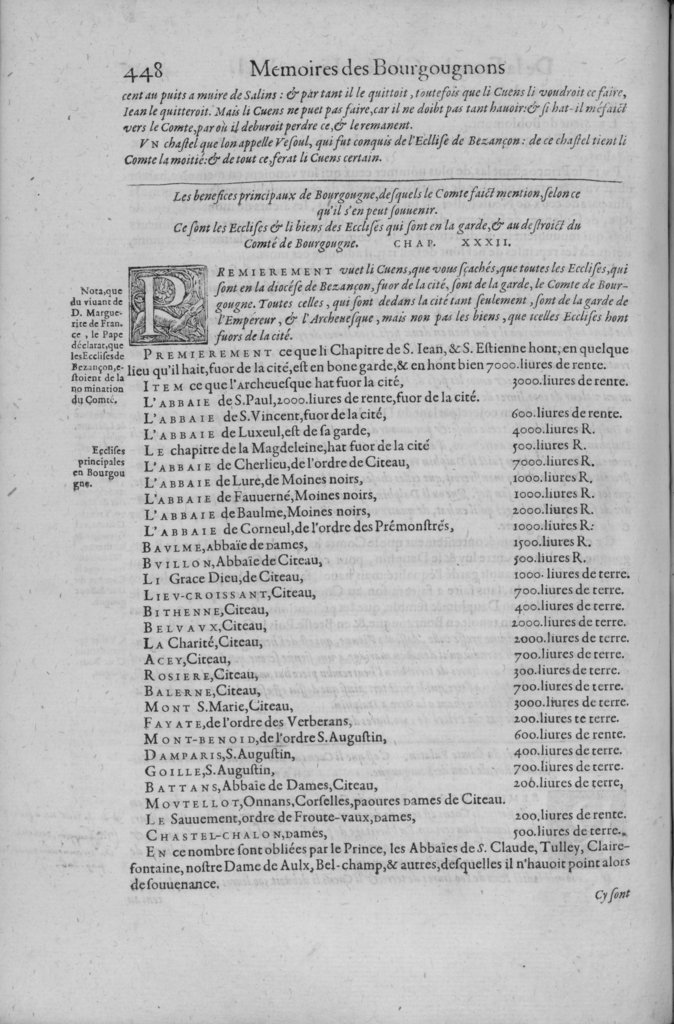 448 Memoires des Bourgougnons
cent au puits a muire de Salins : & par tant il le quittoit, toutefois que li Cuens li voudroit ce faire,
Iean le quitteroit. Mais li Cuens ne puet pas faire, car il ne doibt pas tant hauoir: & si hat-il méfaict
vers le Comte, par où il deburoit perdre ce, & le remanent.
VN chastel que lon appelle Vesoul, qui fut conquis de l'Ecllise de Bezançon : de ce chastel tient li
Comte la moitié: & de tout ce, ferat li Cuens certain.
Les benefices principaux de Bourgougne, desquels le Comte faict mention, selon ce
qu'il s'en peut souuenir.
Ce sont les Ecclises & li biens des Ecclises qui sont en la garde, & au destroict du
Comté de Bourgougne. CHAP. XXXII.
PREMIEREMENT vuet li Cuens, que vous sçachés, que toutes les Ecclises, qui
sont en la diocése de Bezançon, fuor de la cité, sont de la garde, le Comte de Bour-
gougne. Toutes celles, qui sont dedans la cité tant seulement, sont de la garde de
l'Empereur, & l'Archeuesque, mais non pas les biens, que icelles Ecclises hont
fuors de la cité.
Nota, que
du viuant de
D. Margue-
rite de Fran-
ce, le Pape
déclarat, que
les Ecclises de
Bezançon, e-
stoient de la
nomination
du Comté.
PREMIEREMENT ce que li Chapitre de S. Iean, & S. Estienne hont, en quelque
lieu qu'il hait, fuor de la cité, est en bone garde, & en hont bien 7000. liures de rente.
ITEM ce que l'Archeuesque hat fuor la cité, 3000. liures de rente.
L'ABBAIE de S. Paul, 2000. liures de rente, fuor de la cité.
L'ABBAIE de S. Vincent, fuor de la cité, 600. liures de rente.
L'ABBAIE de Luxeul, est de sa garde, 4000. liures R.
Ecclises
principales
en Bourgou
gne.
LE chapitre de la Magdeleine, hat fuor de la cité 500. liures R.
L'ABBAIE de Cherlieu, de l'ordre de Citeau, 7000. liures R.
L'ABBAIE de Lure, de Moines noirs, 1000. liures R.
L'ABBAIE de Fauuerné, Moines noirs, 1000. liures R.
L'ABBAIE de Baulme, Moines noirs, 2000. liures R.
L'ABBAIE de Corneul, de l'ordre des Prémonstrés, 1000. liures R.
BAVLME, Abbaïe de Dames, 1500. liures R.
BVILLON, Abbaïe de Citeau, 500. liures R.
LI Grace Dieu, de Citeau, 1000. liures de terre.
LIEV-CROISSANT, Citeau, 700. liures de terre.
BITHENNE, Citeau, 400. liures de terre.
BELVAVX, Citeau, 2000. liures de terre.
LA Charité, Citeau, 2000. liures de terre.
ACEY, Citeau, 700. liures de terre.
ROSIERE, Citeau, 300. liures de terre.
BALERNE, Citeau, 700. liures de terre.
MONT S. Marie, Citeau, 3000. liures de terre.
FAYATE, de l'ordre des Verberans, 200. liures te terre.
MONT-BENOID, de l'ordre S. Augustin, 600. liures de rente.
DAMPARIS, S. Augustin, 400. liures de terre.
GOILLE, S. Augustin, 700. liures de terre.
BATTANS, Abbaïe de Dames, Citeau, 200. liures de terre,
MOVTELLOT, Onnans, Corselles, paoures Dames de Citeau.
LE Sauuement, ordre de Froute-vaux, Dames, 200. liures de rente.
CHASTEL-CHALON, Dames, 500. liures de terre.
EN ce nombre sont obliées par le Prince, les Abbaïes de S. Claude, Tulley, Claire-
fontaine, nostre Dame de Aulx, Bel-champ, & autres, desquelles il n'hauoit point alors
de souuenance.
Cy sont